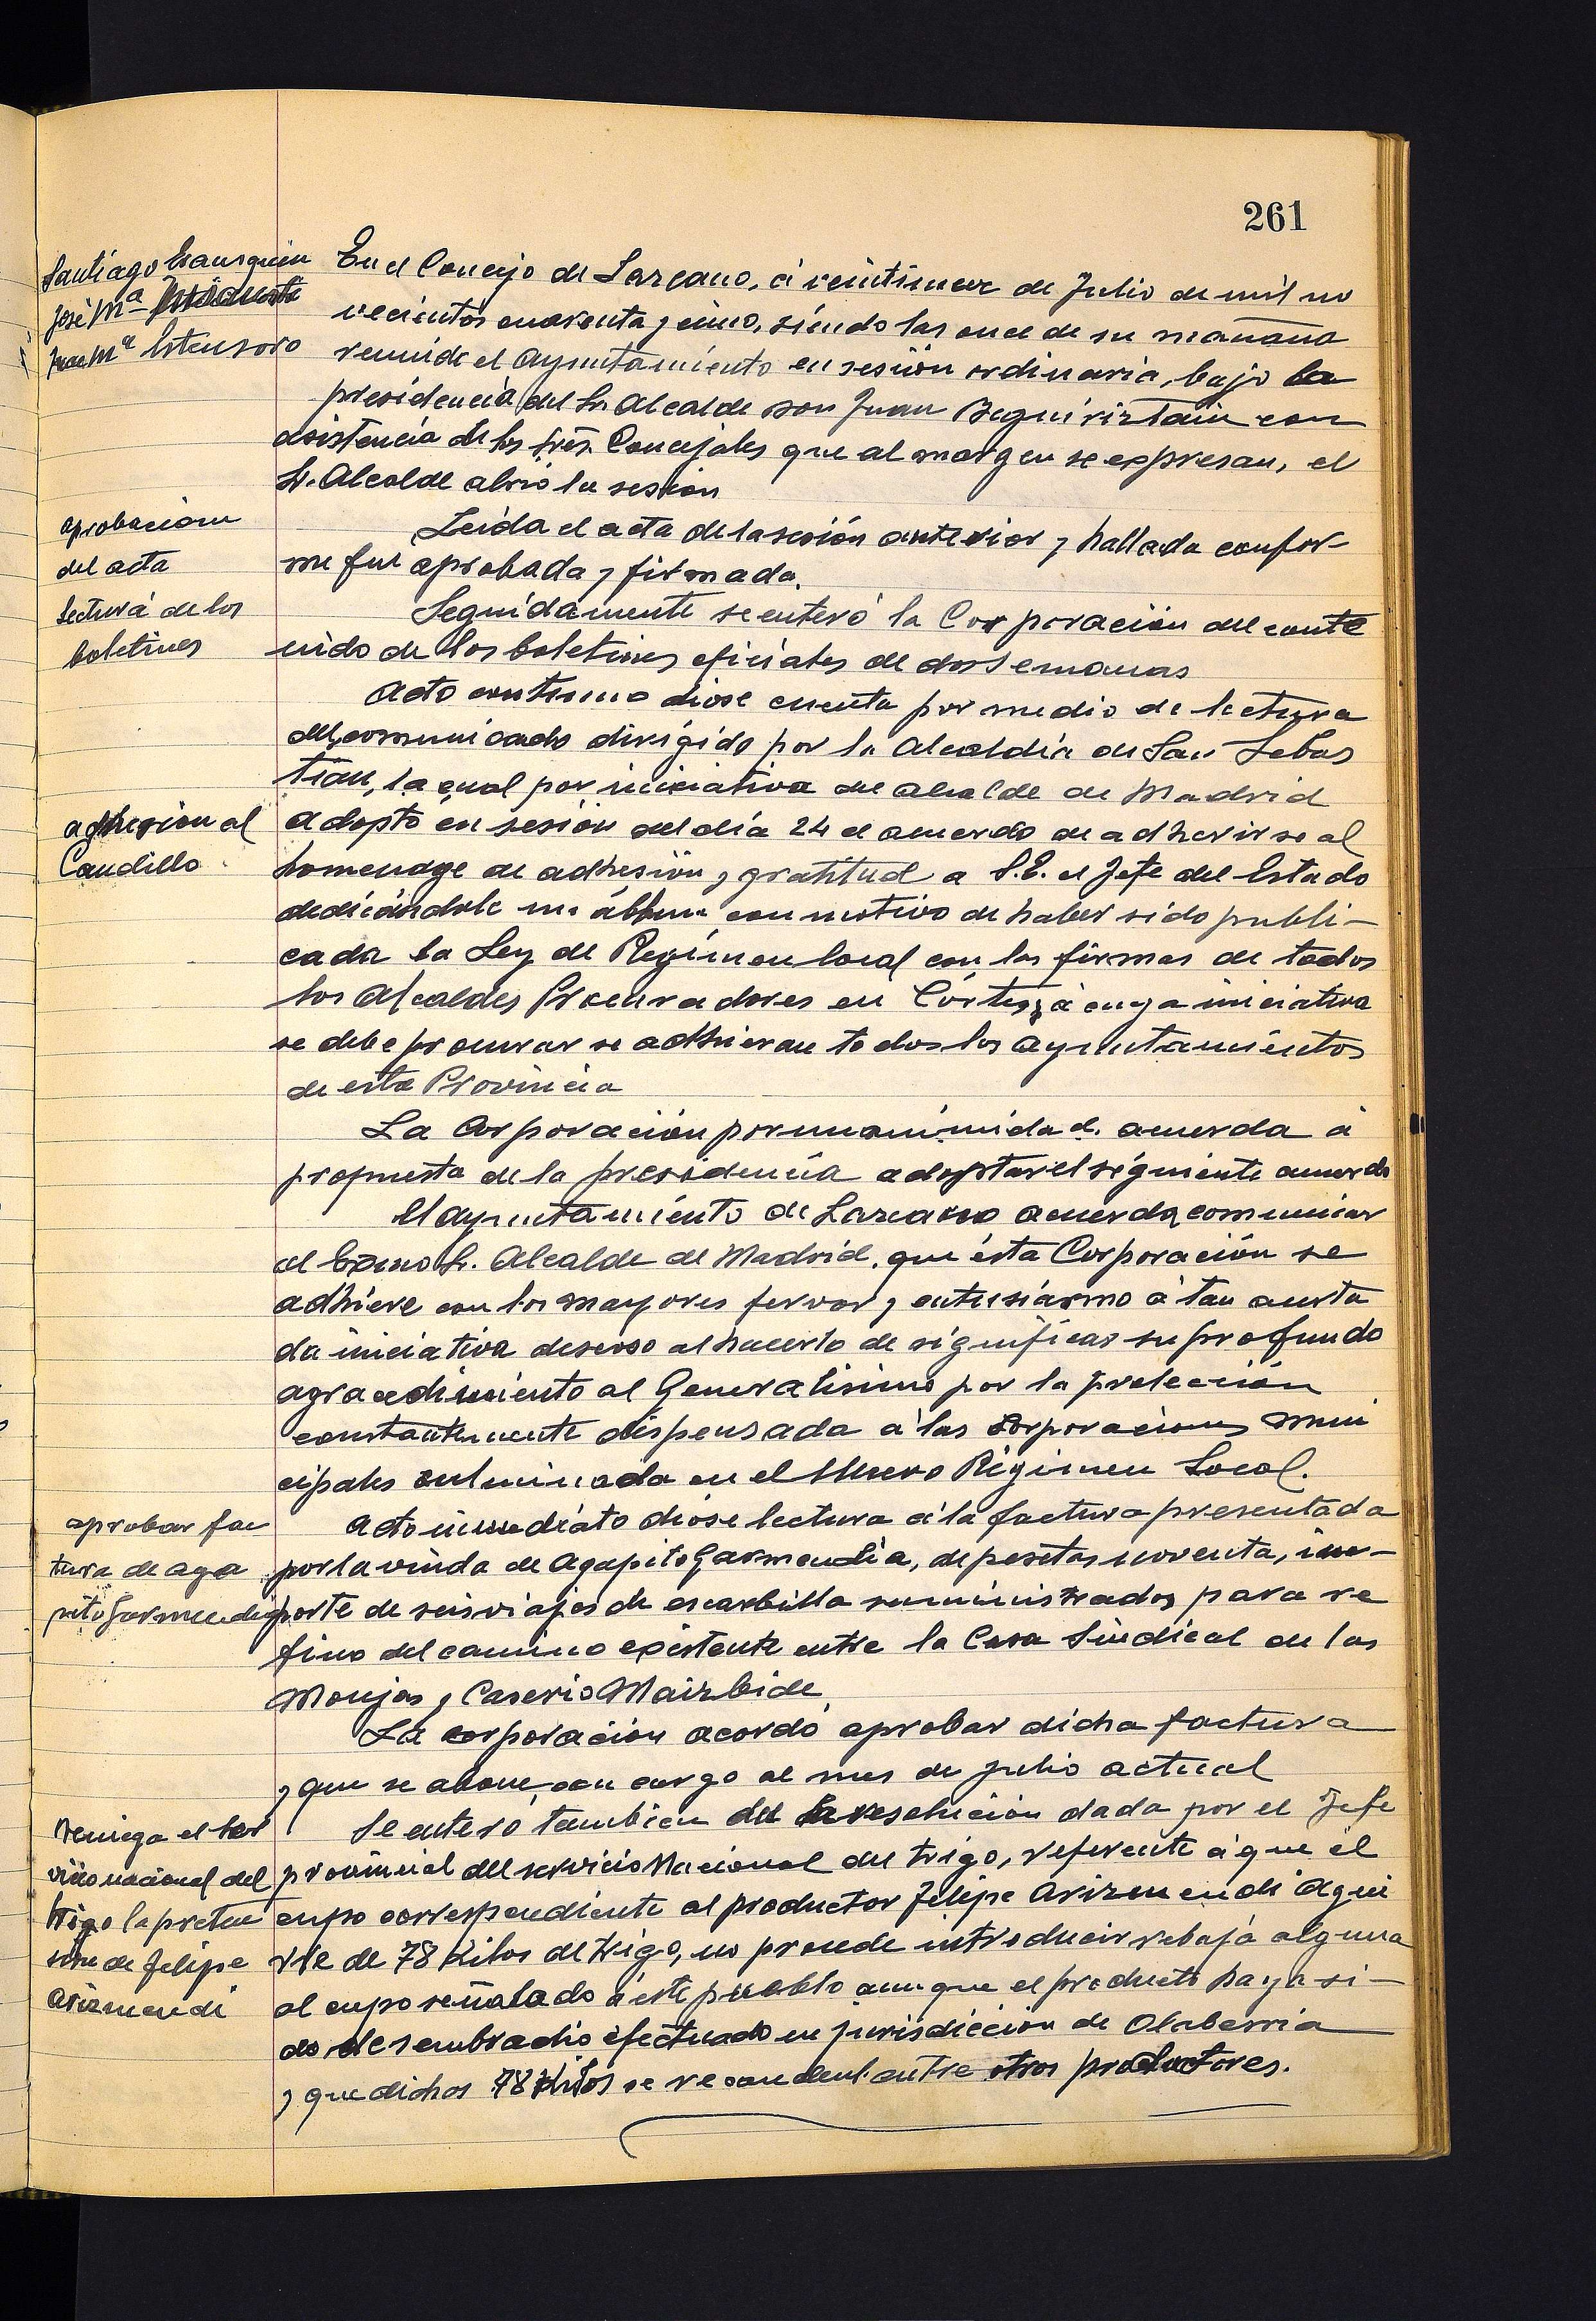 261
Santiago Irausquin
José Mª
Juan Mª Estensoro
En el Concejo de Lazcano, á veintinueve de Julio de mil no
vecientos cuarenta y cinco, siendo las once de su mañana
reunido el Ayuntamiento en sesión ordinaria, bajo la
presidencia del Sr Alcalde Don Juan Beguiristain con
asistencia de los Sres. Concejales que al margen se expresan, el
Sr. Alcalde abrió la sesión
aprobacion
del acta
Leida el acta de la sesión anterior y hallada confor-
me fue aprobada y firmada.
Lectura de los
boletines
Seguidamente se enteró la Corporación del conte
nido de los boletines oficiales de dos semanas
Acto continuo diose cuenta por medio de lectura
del comunicado dirigido por la Alcaldia de San Sebas
tian, la cual por iniciativa del Alcalde de Madrid
adhesion al
Caudillo
adopto en sesión del día 24 el acuerdo de adherirse al
homenage de adhesión y gratitud a S.E. el Jefe del Estado
dedicándole un álbum con motivo de haber sido publi-
cada la Ley de Regimen local con las firmas de todos
los Alcaldes Procuradores en Córtes, á cuya iniciativa
se debe procurar se adhieran todos los ayuntamientos
de esta Provincia
La Corporación por unanimidad. acuerda á
propuesta de la presidencia adoptar el siguiente acuerdo
El ayuntamiento de Lazcano acuerda comunicar
al Excmo Sr. Alcalde de Madrid, que ésta Corporación se
adhiere con los mayores fervor y entusiásmo á tan acerta
da iniciativa deseoso al hacerlo de significar su profundo
agradecimiento al Generalisimo por la protección
constantemente dispensada á las Corporaciones muni
cipales culminada en el Nuevo Régimen Local.
aprobar fac
tura de aga
pito Garmendia
Acto inmediato diose lectura á la factura presentada
por la viuda de Agapito Garmendia, de pesetas noventa, im-
porte de seis viajes de escarbilla suministrados para re
fino del camino existente entre la Casa Sindical de las
Monjas y Caserio Maizbide
La corporación acordó aprobar dicha factura
y que se abone, con cargo al mes de julio actual
Deniega el Ser
vicio nacional del
trigo la preten
sion de Felipe
Arizmendi
Se entero tambien del la resolución dada por el Jefe
provincial del servicio Nacional del trigo, referente á que el
cupo correspondiente al productor Felipe Arizmendi Agui
rre de 78 Kilos de trigo, no procede introducir rebaja alguna
al cupo señalado á este pueblo aunque el producto haya si-
do de sembradio efectuado en jurisdicción de Olaberria
y que dichos 78 Kilos se recauden entre otros productores.